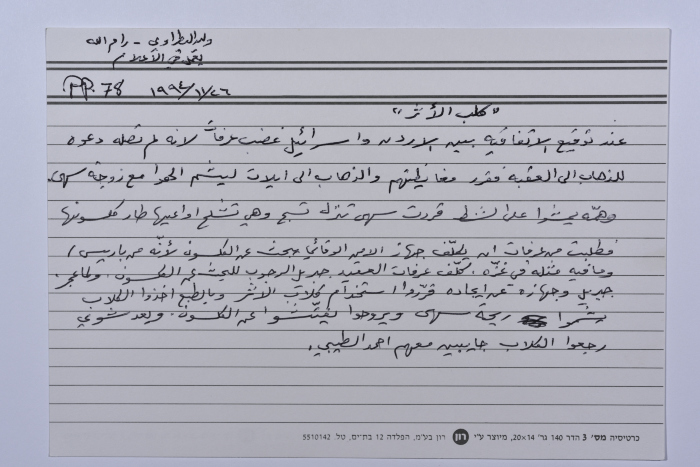 وليد البطراوي - رام الله
يعمل في الأعلام
PP. 78 ١٩٩٤/١١/٢٦
"كلب الأثر"
عند توقيع الاتفاقية بين الاردن واسرائيل غضب عرفات لانه لم تصله دعوه
للذهاب الى العقبه فقرر مغايظتهم والذهاب الى ايلات ليشم الهوا مع زوجته سهى.
وهمّه بمشوا على الشط قررت سهى تنزل تسبح وهي تشلح اواعيها طار كلسونها
فطلبت من عرفات ان يكلّف جهاز الامن الوقائي يبحث عن الكلسون لأنّه من باريس /
وما فيه مثله في غزّه. كلّف عرفات العقيد جبريل الرجوب للبحث عن الكلسون. ولما عجز
جبريل وجهازه عن ايجاده قرّروا استخدام كلاب الاثر وبالطبع اخذوا الكلاب
يشمّوا ريحة سهى ويروحوا يفتّشوا عن الكلسون. وبعد شوي
رجعوا الكلاب جايبين معهم احمد الطيبي.
כרטיסיה מס' 3 הדר 140 גר' 20×14, מיוצר ע"י רון רון בע"מ, הפלדה 12 בת-ים, טל. 5510142